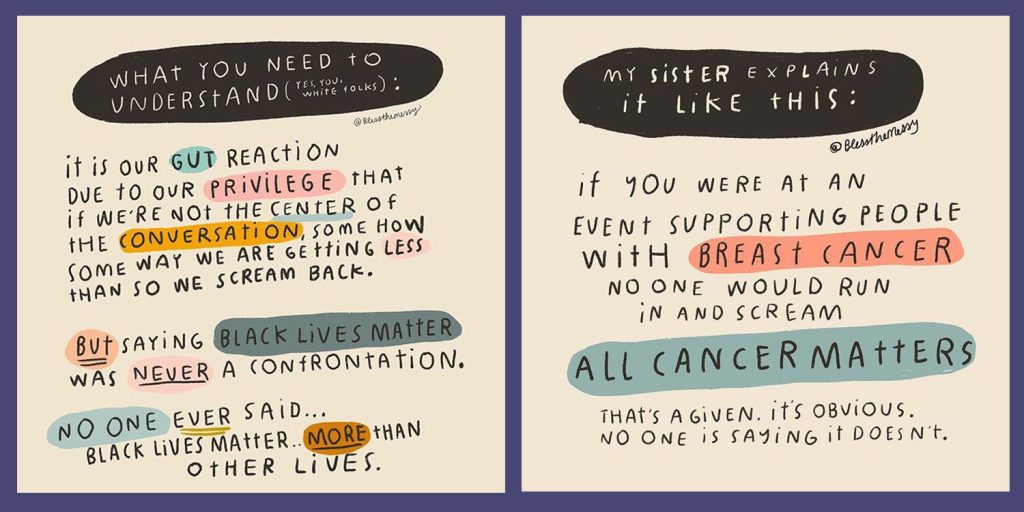 WHAT YOU NEED TO
UNDERSTAND (YES, YOU, WHITE FOLKS) :
@Blessthemessy
it is OUR GUT REACTION
DUE TO OUR PRIVILEGE THAT
if WE'RE NOT THE CENTER OF
THE CONVERSATION, SOME HOW
SOME WAY WE ARE GETTING LESS
THAN SO WE SCREAM BACK.
BUT SAYING BLACK LIVES MATTER
WAS NEVER A CONFRONTATION.
NO ONE EVER SAID...
BLACK LIVES MATTER.. MORE THAN
OTHER LIVES.
MY SISTER EXPLAINS
it LIKE THIS :
@Blessthemessy
if YOU WERE AT AN
EVENT SUPPORTING PEOPLE
WITH BREAST CANCER
NO ONE WOULD RUN
IN AND SCREAM
ALL CANCER MATTERS
THAT'S A GIVEN. IT'S OBVIOUS.
NO ONE IS SAYING IT DOESN'T.